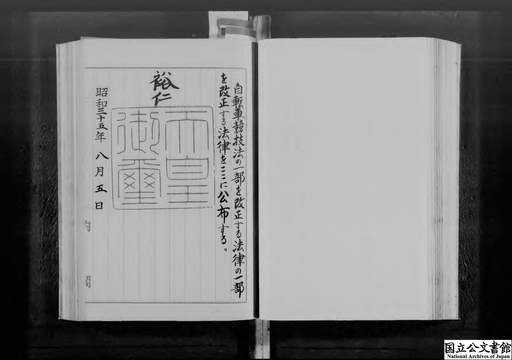 自転車競技法の一部を改正する法律の一部
を改正する法律をここに公布する。
裕仁
天皇
御璽
昭和三十五年 八月 五日
国立公文書館
National Archives of Japan